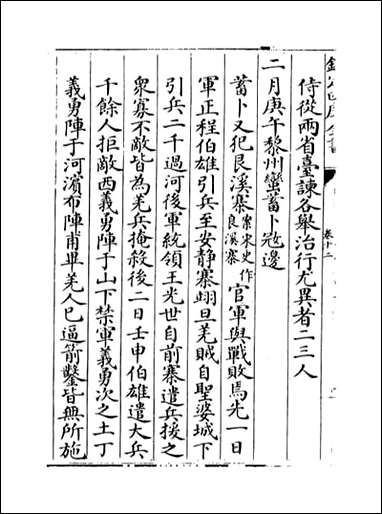 侍從兩省臺諫各舉治行尤異者二三人
二月庚午黎州蠻蓄卜宼邊
蓄卜又犯良溪寨案宋史作良溪寨官軍與戰敗焉先一日
軍正程伯雄引兵至安靜寨翊旦羌賊自聖婆城下
引兵二千過河後軍統領王光世自前寨遣兵援之
衆寡不敵皆為羌兵掩殺後二日壬申伯雄遣大兵
千餘人拒敵西義勇陣于山下禁軍義勇次之土丁
義勇陣于河濱布陣甫畢羌人已逼箭鑿皆無所施
卷十二